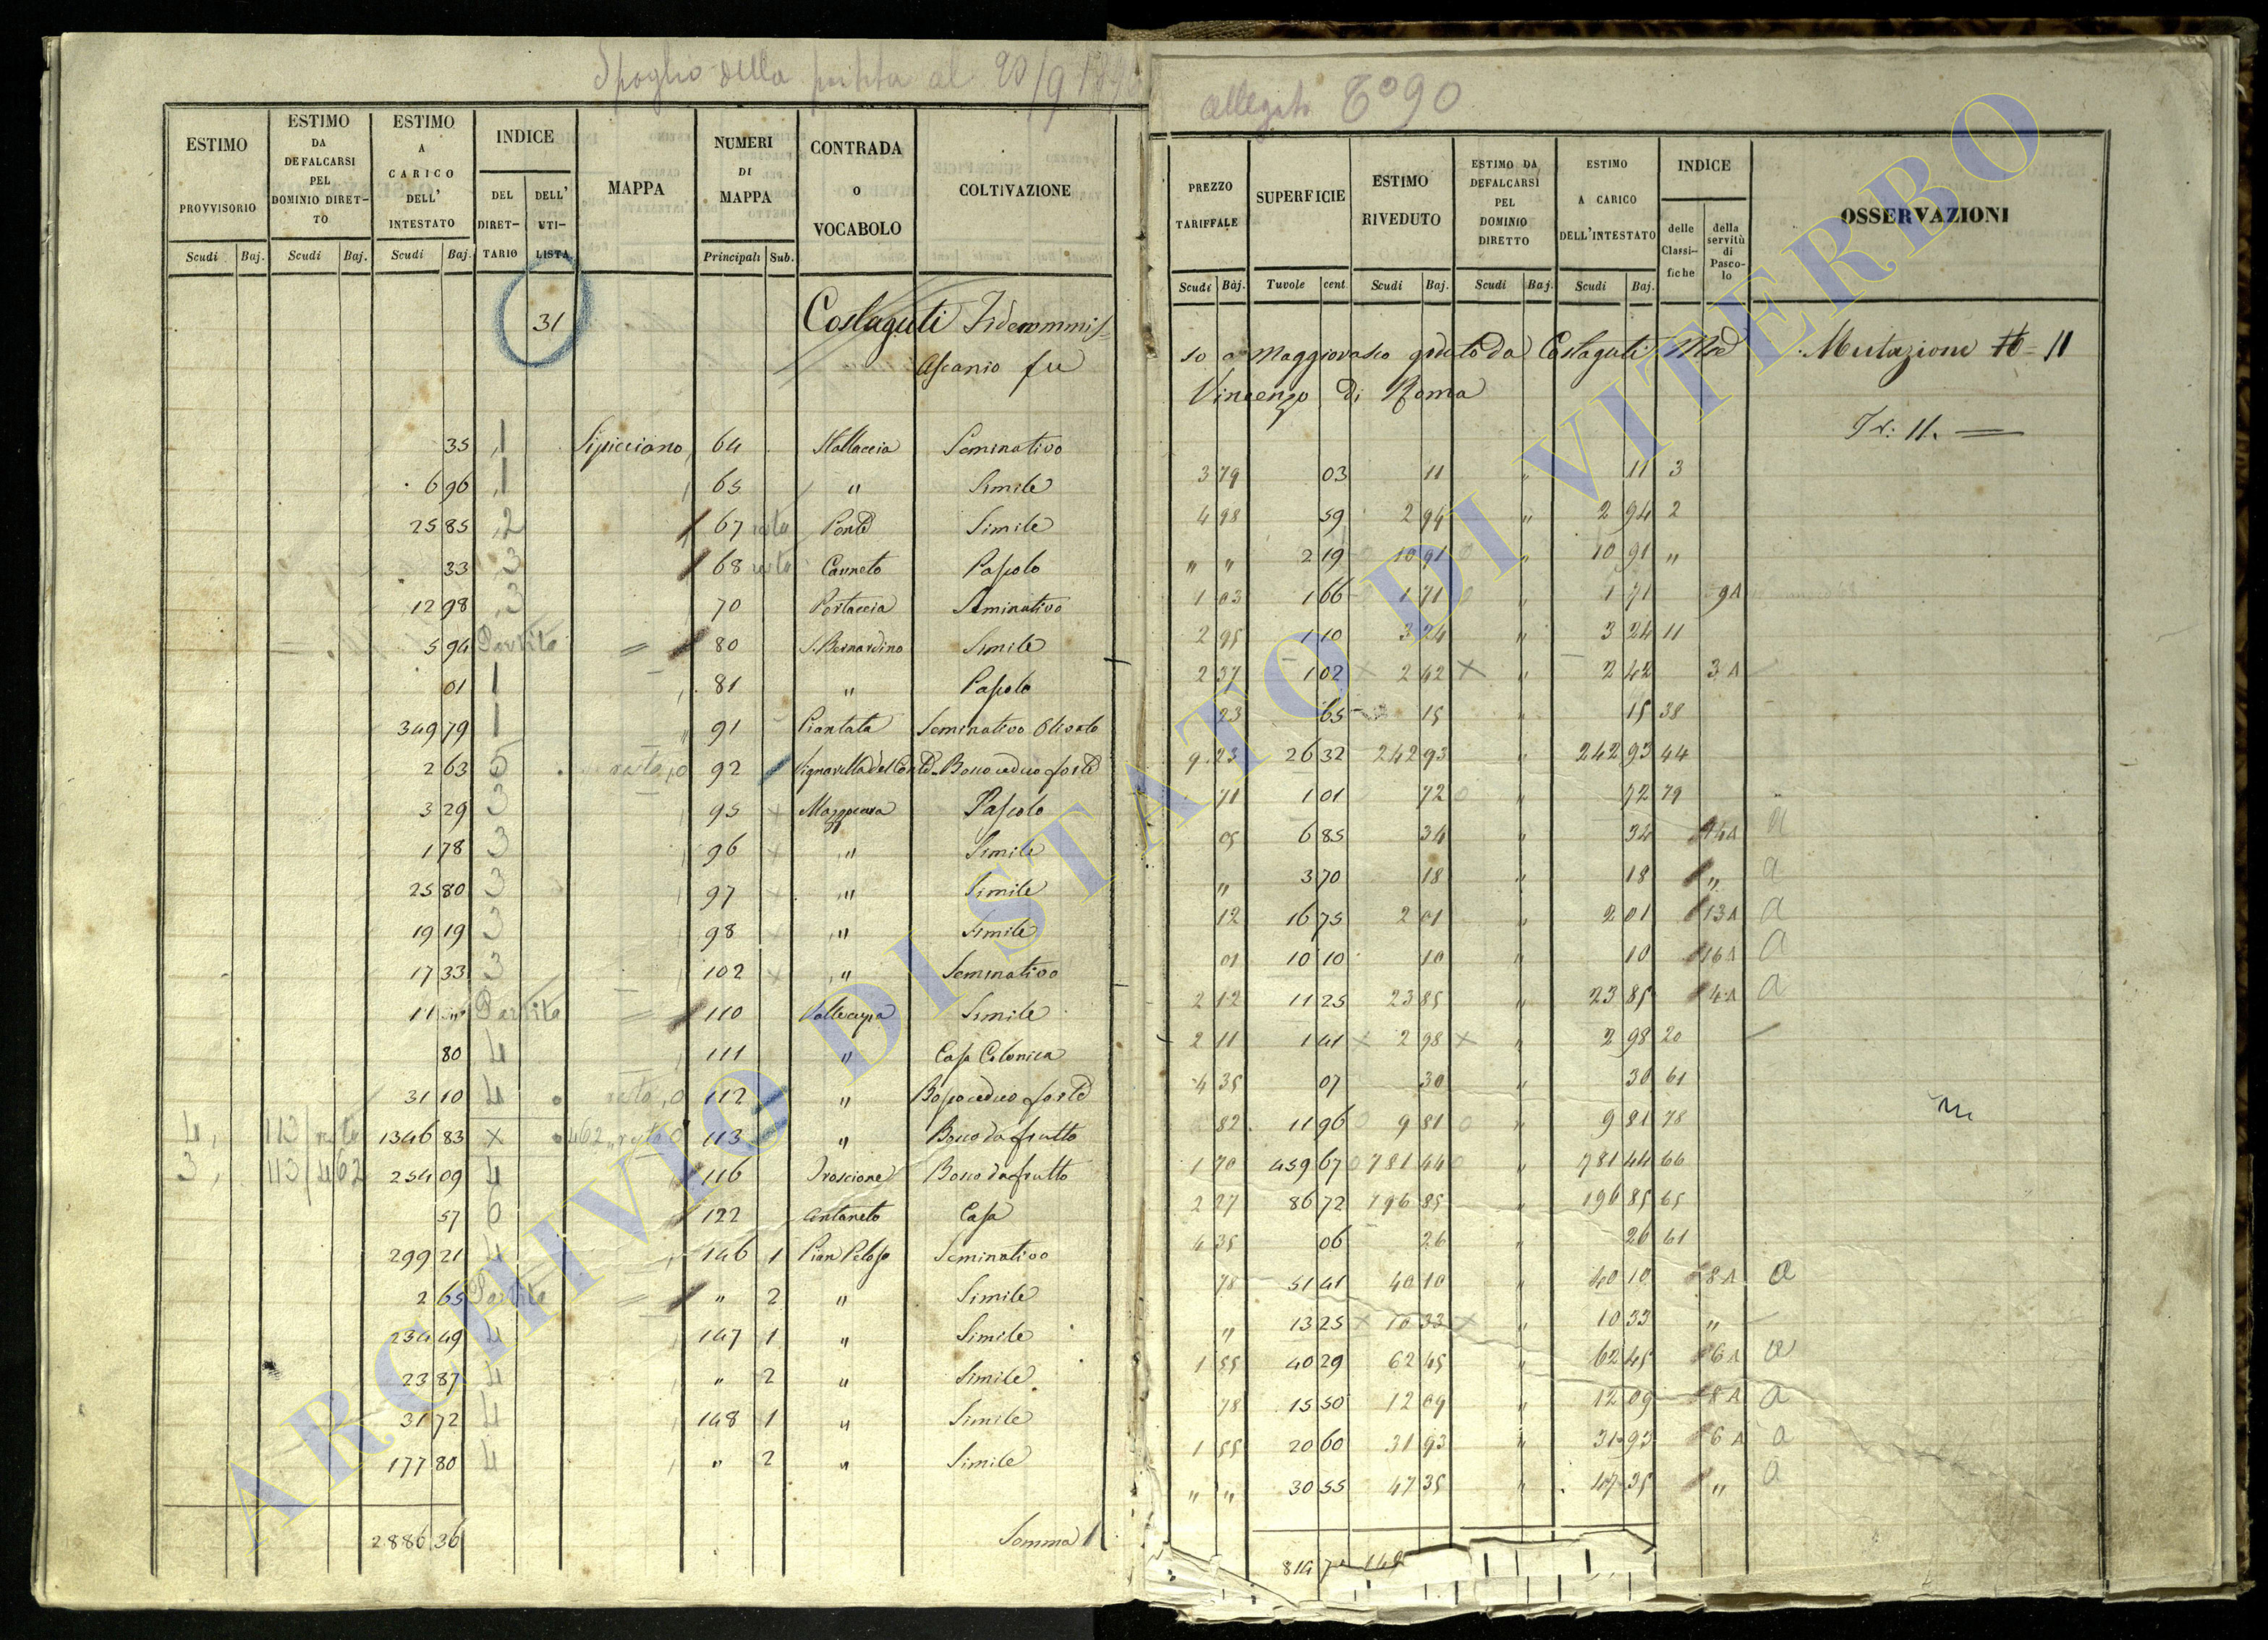 Spoglio della partita al 20/9 18
allegato 6° 90
ESTIMO PROVVISORIO Scudi Baj.
ESTIMO DA DEFALCARSI PEL DOMINIO DIRETTO Scudi Baj.
ESTIMO A CARICO DELL' INTESTATO Scudi Baj.
INDICE DEL DIRETTARIO DELL' UTILISTA
MAPPA
NUMERI DI MAPPA Principali Sub.
CONTRADA O VOCABOLO
COLTIVAZIONE
PREZZO TARIFFALE Scudi Baj.
SUPERFICIE Tavole cent.
ESTIMO RIVEDUTO Scudi Baj.
ESTIMO DA DEFALCARSI PEL DOMINIO DIRETTO Scudi Baj.
ESTIMO A CARICO DELL'INTESTATO Scudi Baj.
INDICE delle Classifiche della servitù di Pascolo
OSSERVAZIONI
31 Costaguti Fidecommis=
so o Maggiorasco goduto da Costaguti Mse Mutazione 11
Ascanio fu Vincenzo di Roma
Tr: 11.
35 1 Sipicciano 64 Stallaccia Seminativo 3 79 03 11 " 11 3
6 96 1 65 " Simile 4 98 59 2 94 " 2 94 2
25 85 2 67 resta Ponte Simile " " 2 19 10 91 " 10 91 "
33 3 68 resta Canneto Pascolo 1 03 1 66 1 71 " 1 71 9A
12 98 3 70 Portaccia Seminativo 2 95 1 10 3 24 " 3 24 11
5 94 Partita = 80 S. Bernardino Simile 2 37 1 02 × 2 42 × " 2 42 3A
01 1 81 " Pascolo 23 65 15 " 15 38
349 79 1 91 Piantata Seminativo Olivato 9 23 26 32 242 93 " 242 93 44
2 63 5 resta, 0 92 Vignarella del Conte Bosco ceduo forte 71 1 01 72 " 72 79
3 29 3 95 × Pascolo 05 6 85 34 " 34 14A a
1 78 3 96 × " Simile " 3 70 18 " 18 " a
25 80 3 97 × " Simile 12 16 75 2 01 " 2 01 13A a
19 19 3 98 × " Simile 01 10 10 10 " 10 16A a
17 33 3 102 × " Seminativo 2 12 11 25 23 85 " 23 85 4A a
11 " Partita = 110 Vallecupa Simile 2 11 1 41 × 2 98 × " 2 98 20
80 4 111 " Casa Colonica 4 35 07 30 " 30 61
31 10 4 resta, 0 112 " Bosco ceduo forte 82 11 96 9 81 " 9 81 78
4, 113 resta 1346 83 × 462 resta 0 113 " Bosco da frutto 1 70 459 67 781 44 " 781 44 66
3, 113/462 254 09 4 116 Troscione Bosco da frutto 2 27 86 72 196 85 " 196 85 65
57 6 122 Antaneto Casa 4 35 06 26 " 26 61
299 21 4 146 1 Pian Peloso Seminativo 78 51 41 40 10 " 40 10 8A a
2 65 Partita = " 2 " Simile " 13 25 × 10 33 × " 10 33 "
234 49 4 147 1 " Simile 1 55 40 29 62 45 " 62 45 6A a
23 87 4 " 2 " Simile 78 15 50 12 09 " 12 09 8A a
31 72 4 148 1 " Simile 1 55 20 60 31 93 " 31 93 6A a
177 80 4 " 2 " Simile " " 30 55 47 35 " 47 35 " a
2886 36 Somma
ARCHIVIO DI STATO DI VITERBO